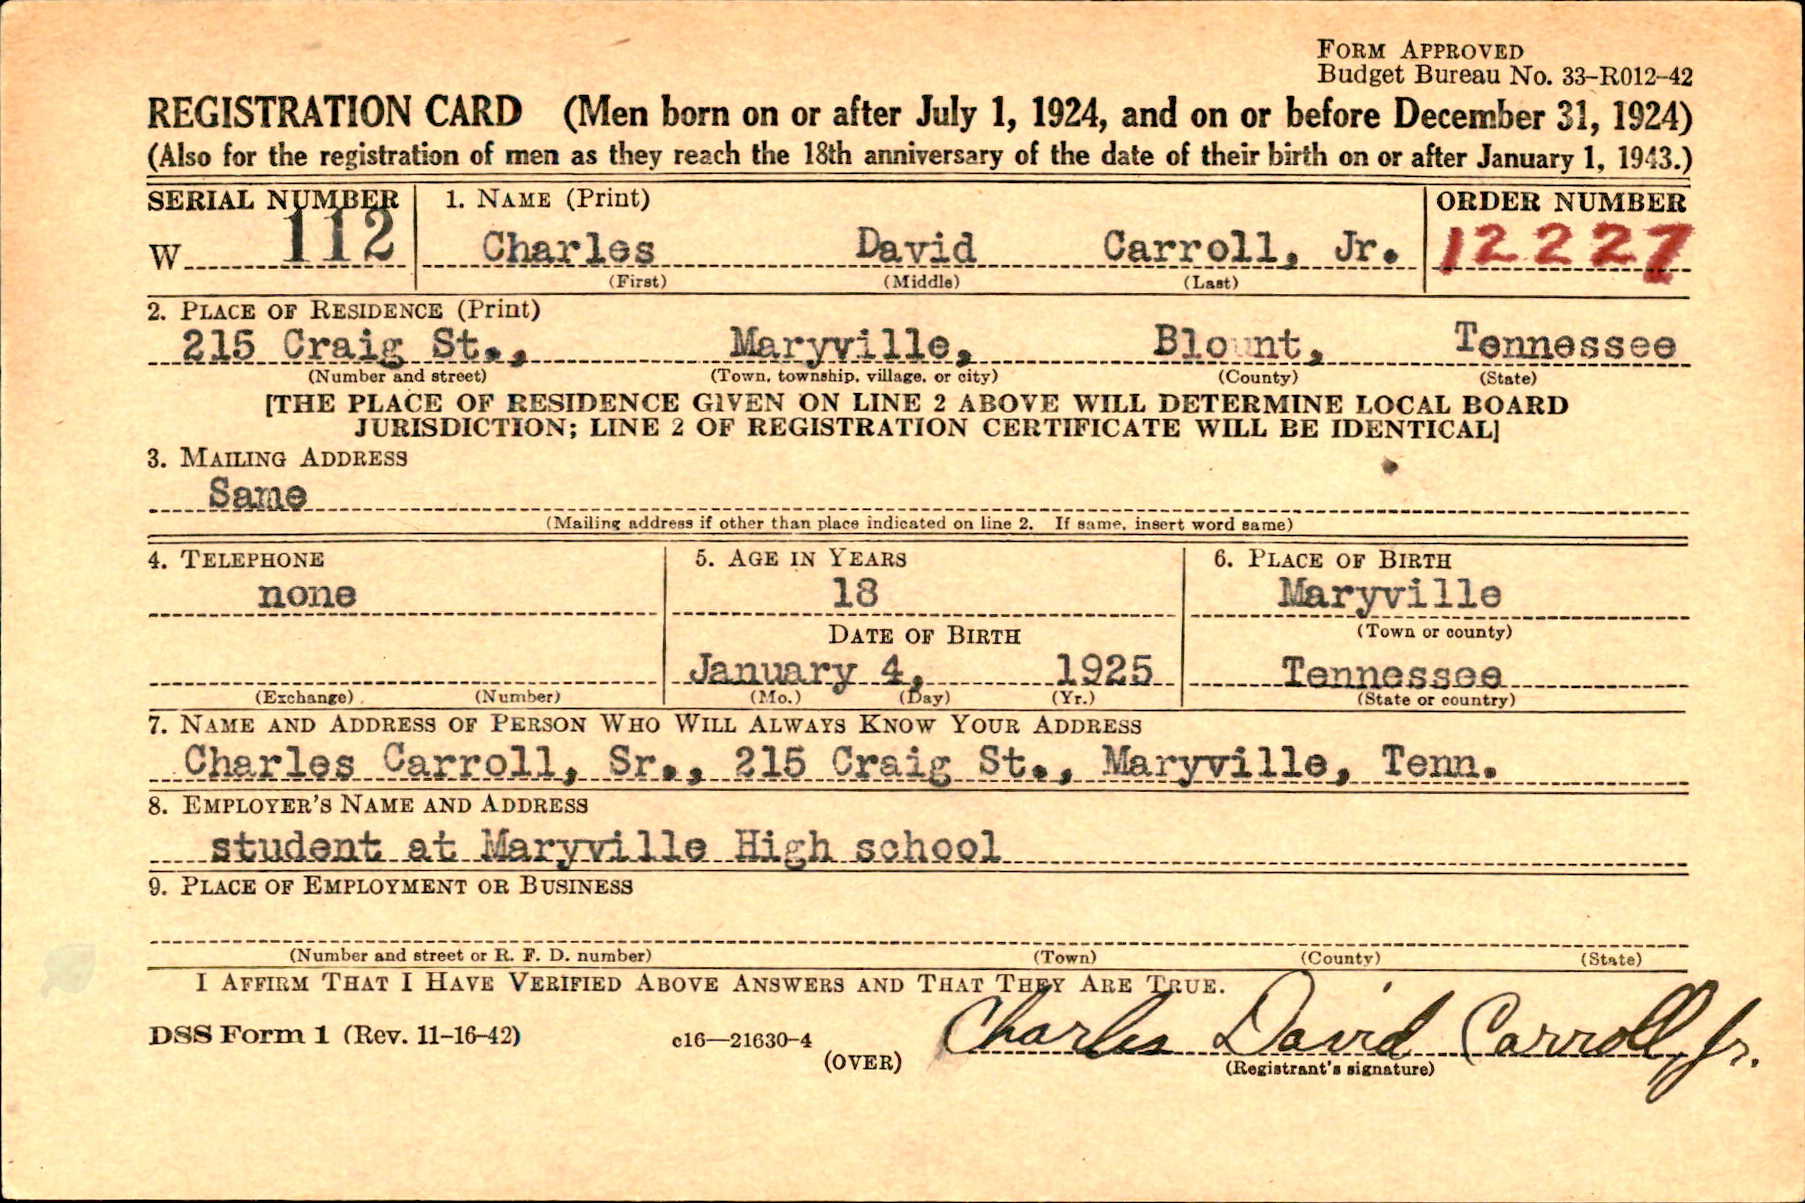 FORM APPROVED
Budget Bureau No. 33-R012-42
REGISTRATION CARD (Men born on or after July 1, 1924, and on or before December 31, 1924)
(Also for the registration of men as they reach the 18th anniversary of the date of their birth on or after January 1, 1943.)
SERIAL NUMBER 1. NAME (Print) ORDER NUMBER
W 112 Charles David Carroll, Jr. 12227
(First) (Middle) (Last)
2. PLACE OF RESIDENCE (Print)
215 Craig St., Maryville, Blount, Tennessee
(Number and street) (Town, township, village, or city) (County) (State)
[THE PLACE OF RESIDENCE GIVEN ON LINE 2 ABOVE WILL DETERMINE LOCAL BOARD
JURISDICTION; LINE 2 OF REGISTRATION CERTIFICATE WILL BE IDENTICAL]
3. MAILING ADDRESS
Same
(Mailing address if other than place indicated on line 2. If same, insert word same)
4. TELEPHONE 5. AGE IN YEARS 6. PLACE OF BIRTH
none 18 Maryville
DATE OF BIRTH (Town or county)
January 4, 1925 Tennessee
(Exchange) (Number) (Mo.) (Day) (Yr.) (State or country)
7. NAME AND ADDRESS OF PERSON WHO WILL ALWAYS KNOW YOUR ADDRESS
Charles Carroll, Sr., 215 Craig St., Maryville, Tenn.
8. EMPLOYER'S NAME AND ADDRESS
student at Maryville High school
9. PLACE OF EMPLOYMENT OR BUSINESS
(Number and street or R. F. D. number) (Town) (County) (State)
I AFFIRM THAT I HAVE VERIFIED ABOVE ANSWERS AND THAT THEY ARE TRUE.
DSS Form 1 (Rev. 11-16-42) c16—21630-4 Charles David Carroll, Jr.
(OVER) (Registrant's signature)